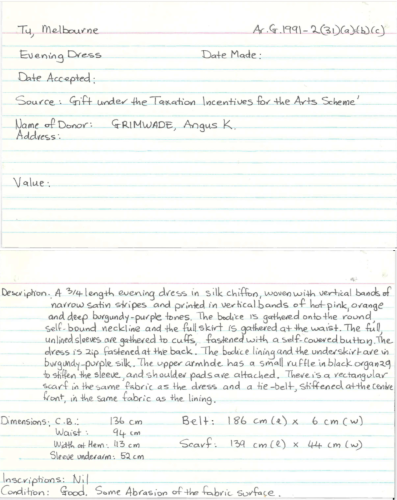 Ty, Melbourne Ar.G.1991-2(31)(a)(b)(c)
Evening Dress Date Made:
Date Accepted:
Source: Gift under the Taxation Incentives for the Arts Scheme'
Name of Donor: GRIMWADE, Angus K.
Address:
Value:
Description: A 3/4 length evening dress in silk chiffon, woven with vertical bands of
narrow satin stripes and printed in vertical bands of hot pink, orange
and deep burgundy-purple tones. The bodice is gathered onto the round
self-bound neckline and the full skirt is gathered at the waist. The full,
unlined sleeves are gathered to cuffs, fastened with a self-covered button. The
dress is zip fastened at the back. The bodice lining and the underskirt are in
burgundy-purple silk. The upper armhole has a small ruffle in black organza
to stiffen the sleeve, and shoulder pads are attached. There is a rectangular
scarf in the same fabric as the dress and a tie-belt, stiffened at the centre
front, in the same fabric as the lining.
Dimensions: C.B.: 136 cm Belt: 186 cm (l) x 6 cm (w)
Waist: 94 cm
Width at Hem: 113 cm Scarf: 139 cm (l) x 44 cm (w)
Sleeve underarm: 52 cm
Inscriptions: Nil
Condition: Good. Some Abrasion of the fabric surface.